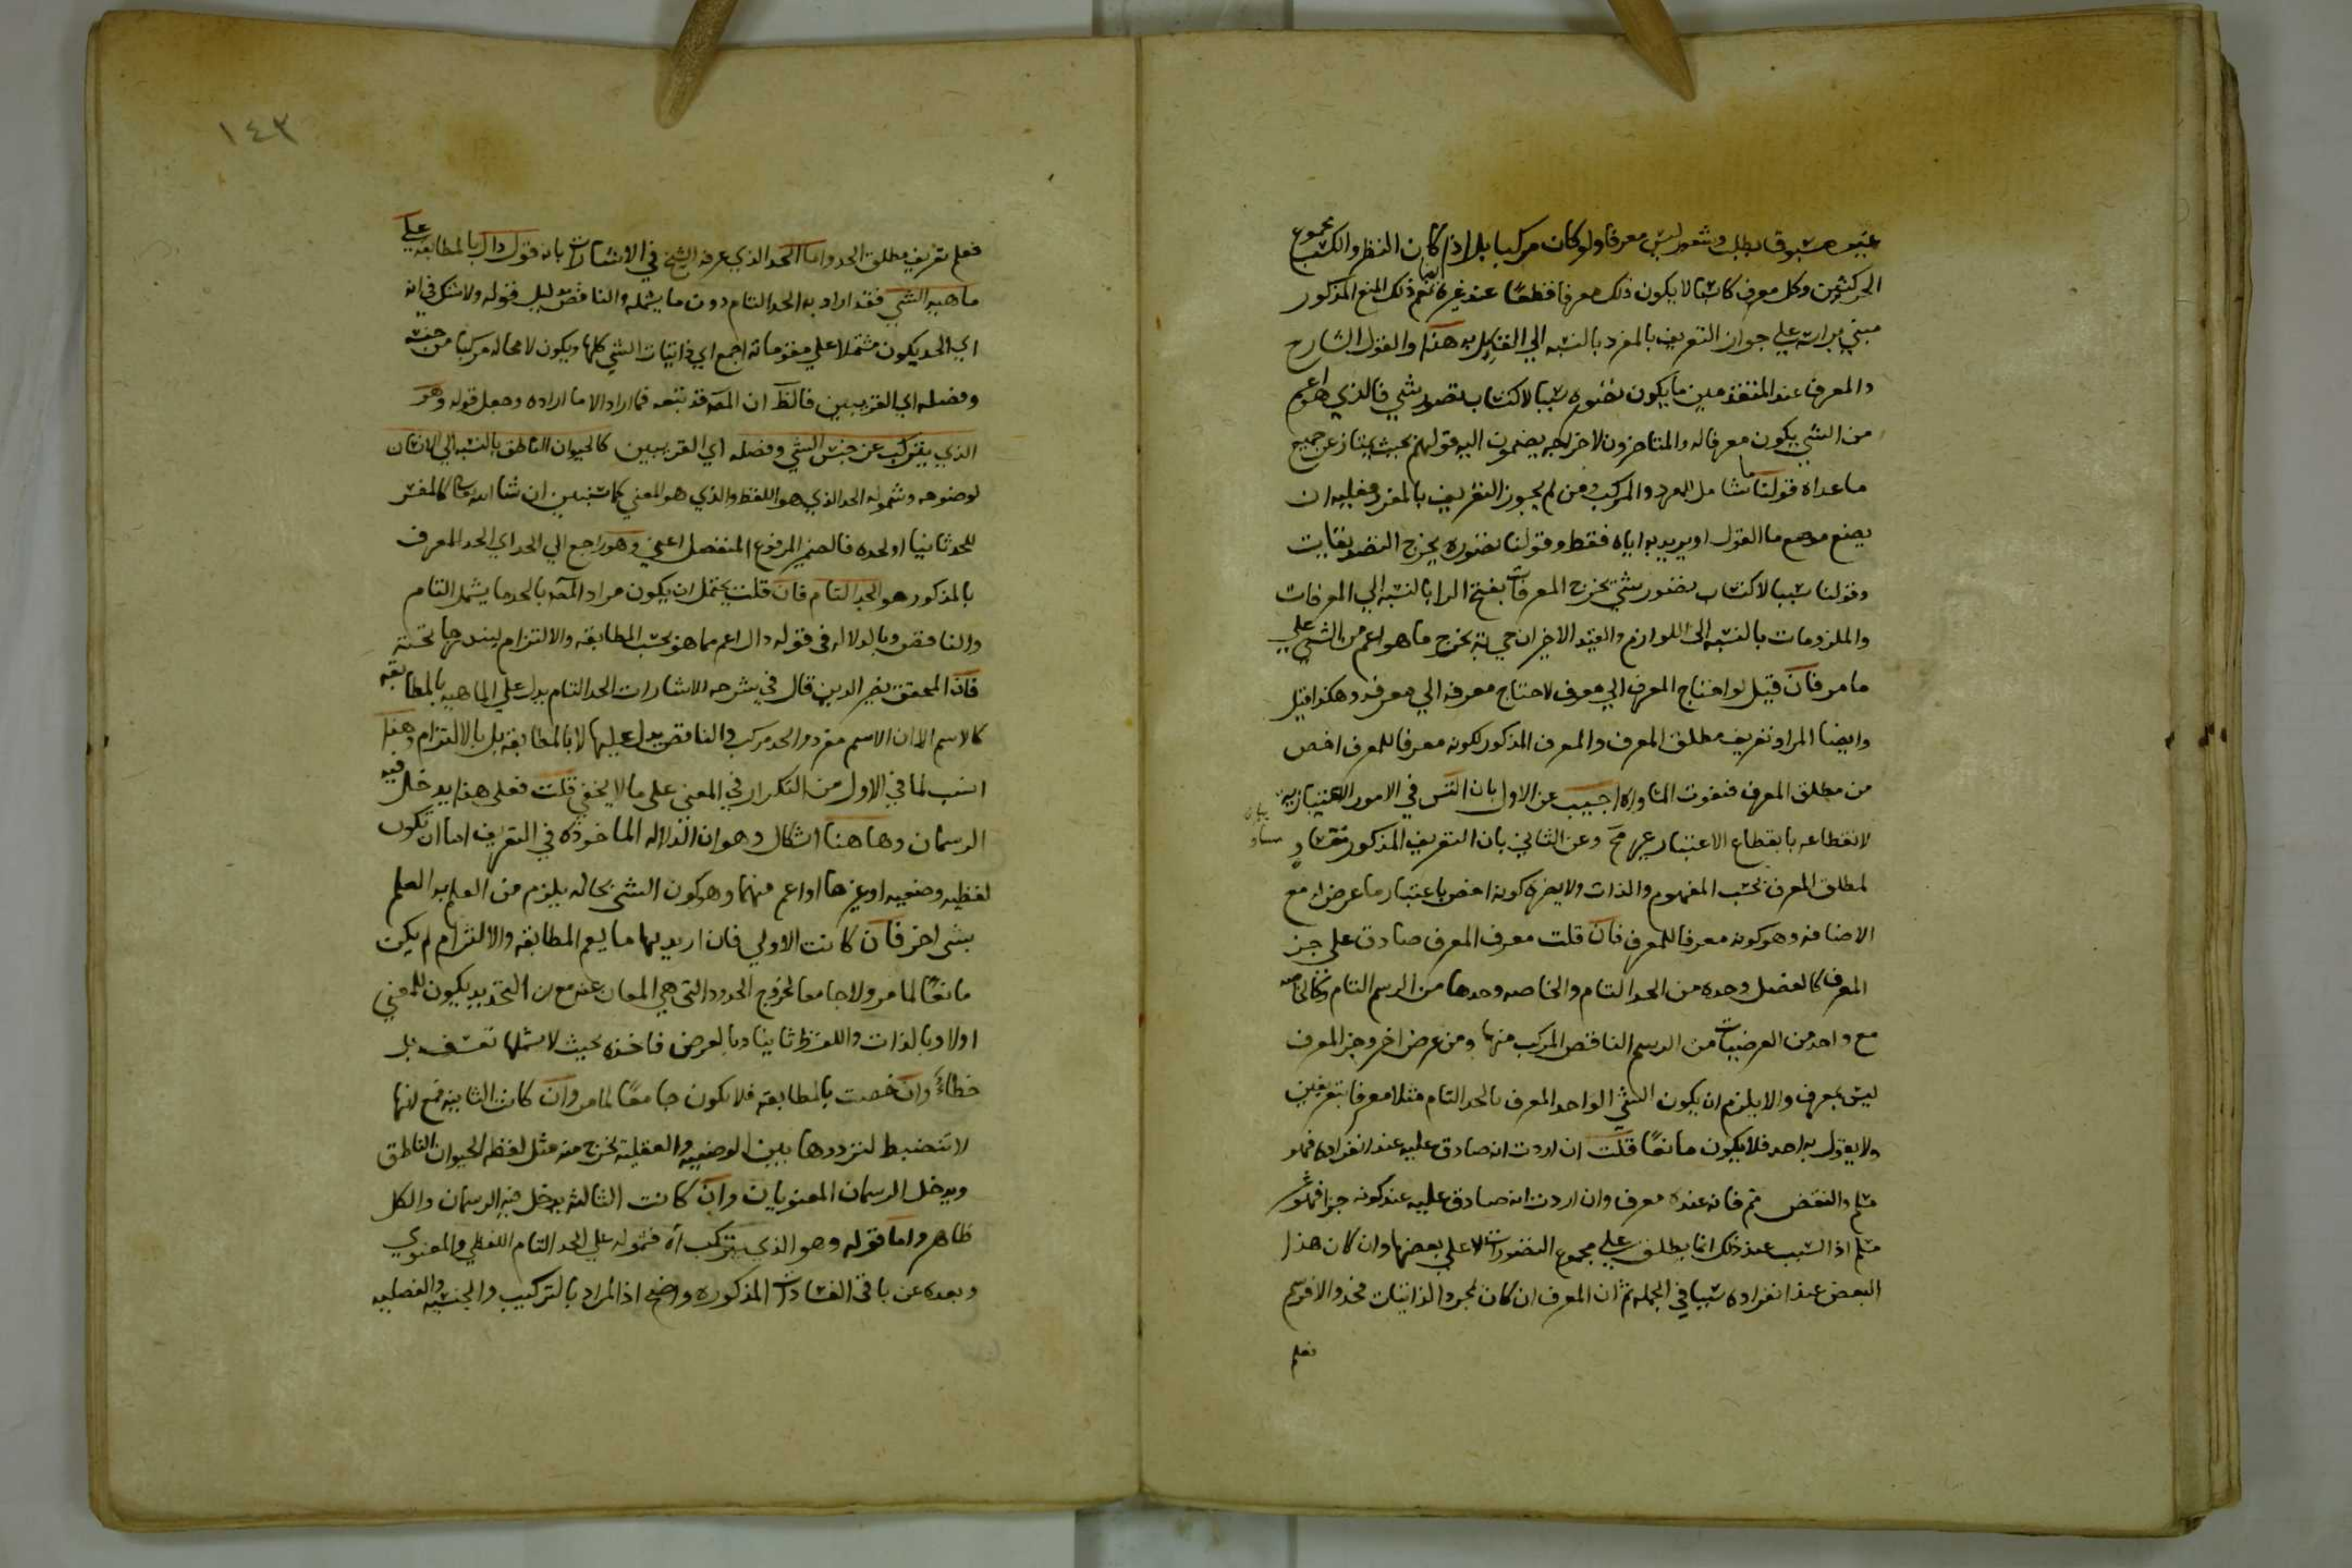 غير مسبوق بطلب وشعور ليس معرفا ولو كان مركبا بل اذا كان النظر والكسب مجموع
الحركتين وكل معرف كاسبا لا يكون ذلك معرفا قطعا عند غيره ايضا نعم ذلك المنع المذكور
مبني برأيه علي جواز التعريف بالمفرد بالنسبه الي القايل به هذا والقول الشارح
والمعرف عند المتقدمين ما يكون تصوره سببا لاكتساب تصور شي فالذي هو اعم
من الشي يكون معرفا له والمتاخرون لاخراجه يضمون اليه قولهم بحيث يمتاز عن جميع
ما عداه فقولنا ما شامل المفرد والمركب ومن لم يجوز التعريف بالمفرد فعليه ان
يضع موضع ما القول او يريد به اياه فقط وقولنا تصوره يخرج التصديقات
وقولنا سببا لاكتساب تصور شي يخرج المعرفات بفتح الرا بالنسبه الي المعرفات
والملزومات بالنسبه الى اللوازم والقيد الاخير ان جي به يخرج ما هو اعم من الشي علي
ما مر فان قيل لو احتاج المعرف الي معرف لاحتاج معرفه الي معرف وهكذا قيل
وايضا المراد تعريف مطلق المعرف والمعرف المذكور لكونه معرفا للمعرف اخص
من مطلق المعرف فتفوت المساواه اجيب عن الاول بان التس في الامور الاعتباريه
لانقطاعه بانقطاع الاعتبار غير مح وعن الثاني بان التعريف المذكور مساو
بيان
مساو
لمطلق المعرف بحسب المفهوم والذات ولا يضره كونه اخص باعتبار ما عرض له مع
الاضافه وهو كونه معرفا للمعرف فان قلت معرف المعرف صادق على جز
المعرف كالفصل وحده من الحد التام والخاصه وحدها من الرسم التام وكالخاصه
مع واحد من العرضيات من الرسم الناقص المركب منها ومن عرض اخر وجز المعرف
ليس بمعرف والا يلزم ان يكون الشي الواحد المعرف بالحد التام مثلا معرفا بتعريفين
ولا يقول به احد فلا يكون مانعا قلت ان اردت انه صادق عليه عند انفراده فهو
مسلم والنقض مم فانه عنده معرف وان اردت انه صادق عليه عند كونه جزا فهو غير
مسلم اذ السبب عند ذلك انما يطلق علي مجموع التصورات لا علي بعضها وان كان هذا
البعض عند انفراده سببا في الجمله ثم ان المعرف ان كان بمجرد الذاتيات فحد والا فرسم
فعلم
١٤٣
فعلم تعريف مطلق الحد واما الحد الذي عرفه الشيخ في الاشارات بانه قول دال بالمطابقه علي
ماهيه الشي فقد اراد به الحد التام دون ما يشمله والناقص بدليل قوله ولا شك في انه
اي الحد يكون مشتملا علي مقوماته اجمع اي ذاتيات الشي كلها ويكون لا محاله مركبا من جنسه
وفصله اي القريبين فالظ ان المص قد تبعه فما اراد الا ما اراده وجعل قوله وهو
الذي يتركب عن جنس الشي وفصله اي القريبين كالحيوان الناطق بالنسبه الي الانسان
لوضوحه وشموله الحد الذي هو اللفظ والذي هو المعني كما ستبين ان شا الله تعالى كالمفسر
للحد ثانيا او لحده فالضمير المرفوع المنفصل اعني وهو راجع الي الحد اي الحد المعرف
بالمذكور هو الحد التام فان قلت يحتمل ان يكون مراد المص بالحد ما يشمل التام
والناقص وبالدلاله في قوله دال اعم مما هو بحسب المطابقه والالتزام ليندرجا تحته
فان المحقق نصير الدين قال في شرحه الاشارات الحد التام يدل علي الماهيه بالمطابقه
كالاسم الا ان الاسم مفرد والحد مركب والناقص يدل عليها لا بالمطابقه بل بالالتزام وهذا
انسب لما في الاول من التكرار في المعنى على ما لا يخفي قلت فعلى هذا يدخل فيه
الرسمان وهاهنا اشكال وهو ان الدلاله الماخوذه في التعريف اما ان تكون
لفظيه وضعيه او غيرها او اعم منهما وهو كون الشي بحاله يلزم من العلم به العلم
بشى اخر فان كانت الاولي فان اريد بها ما يعم المطابقه والالتزام لم يكن
مانعا لما مر ولا جامعا لخروج الحدود التى هي المعان عنه مع ان التحديد يكون للمعني
اولا وبالذات واللفظ ثانيا وبالعرض فاخذه بحيث لا يشملها تعسف بل
خطاء وان خصت بالمطابقه فلا يكون جامعا لما مر وان كانت الثانيه فمع انها
لا تنضبط لترددها بين الوضعيه والعقليه يخرج منه مثل لفظ الحيوان الناطق
ويدخل الرسمان المعنويان وان كانت الثالثه يدخل فيه الرسمان والكل
ظاهر واما قوله وهو الذي يتركب اه فشموله علي الحد التام اللفظي والمعنوي
وبعده عن باقي الفسادات المذكوره واضح اذ المراد بالتركيب والجنسيه والفصليه